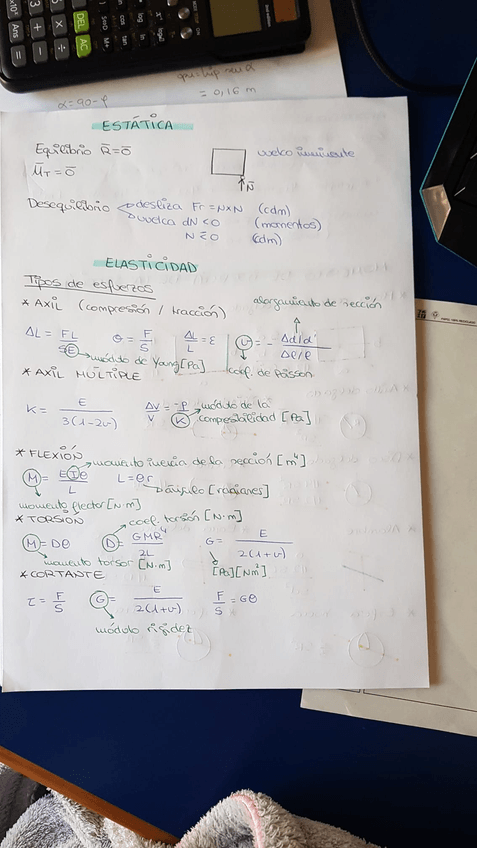 DEL
AC
Ans
= 0,16 m
α=90-φ
ESTÁTICA
Equilibrio R̄=0̄
M̄_T=0̄
vuelco inminente
N̄
Desequilibrio desliza Fr=μ×N (cdm)
vuelca dN<0 (momentos)
N≤0 (cdm)
ELASTICIDAD
Tipos de esfuerzos
* AXIL (compresión / tracción) alargamiento de sección
ΔL = FL/SE σ = F/S ΔL/L = ε ν = - Δd/d / Δl/l
módulo de Young [Pa] coef. de Poisson
* AXIL MÚLTIPLE
K = E/3(1-2ν) ΔV/V = -P/K módulo de la compresibilidad [Pa]
* FLEXIÓN
momento inercia de la sección [m⁴]
M = EIθ/L L=θr ángulo [radianes]
momento flector [N·m]
* TORSIÓN coef. torsión [N·m]
M = Dθ D = GπR⁴/2L G = E/2(1+ν)
momento torsor [N·m] [Pa][N/m²]
* CORTANTE
τ = F/S G = E/2(1+ν) F/S = Gθ
módulo rigidez